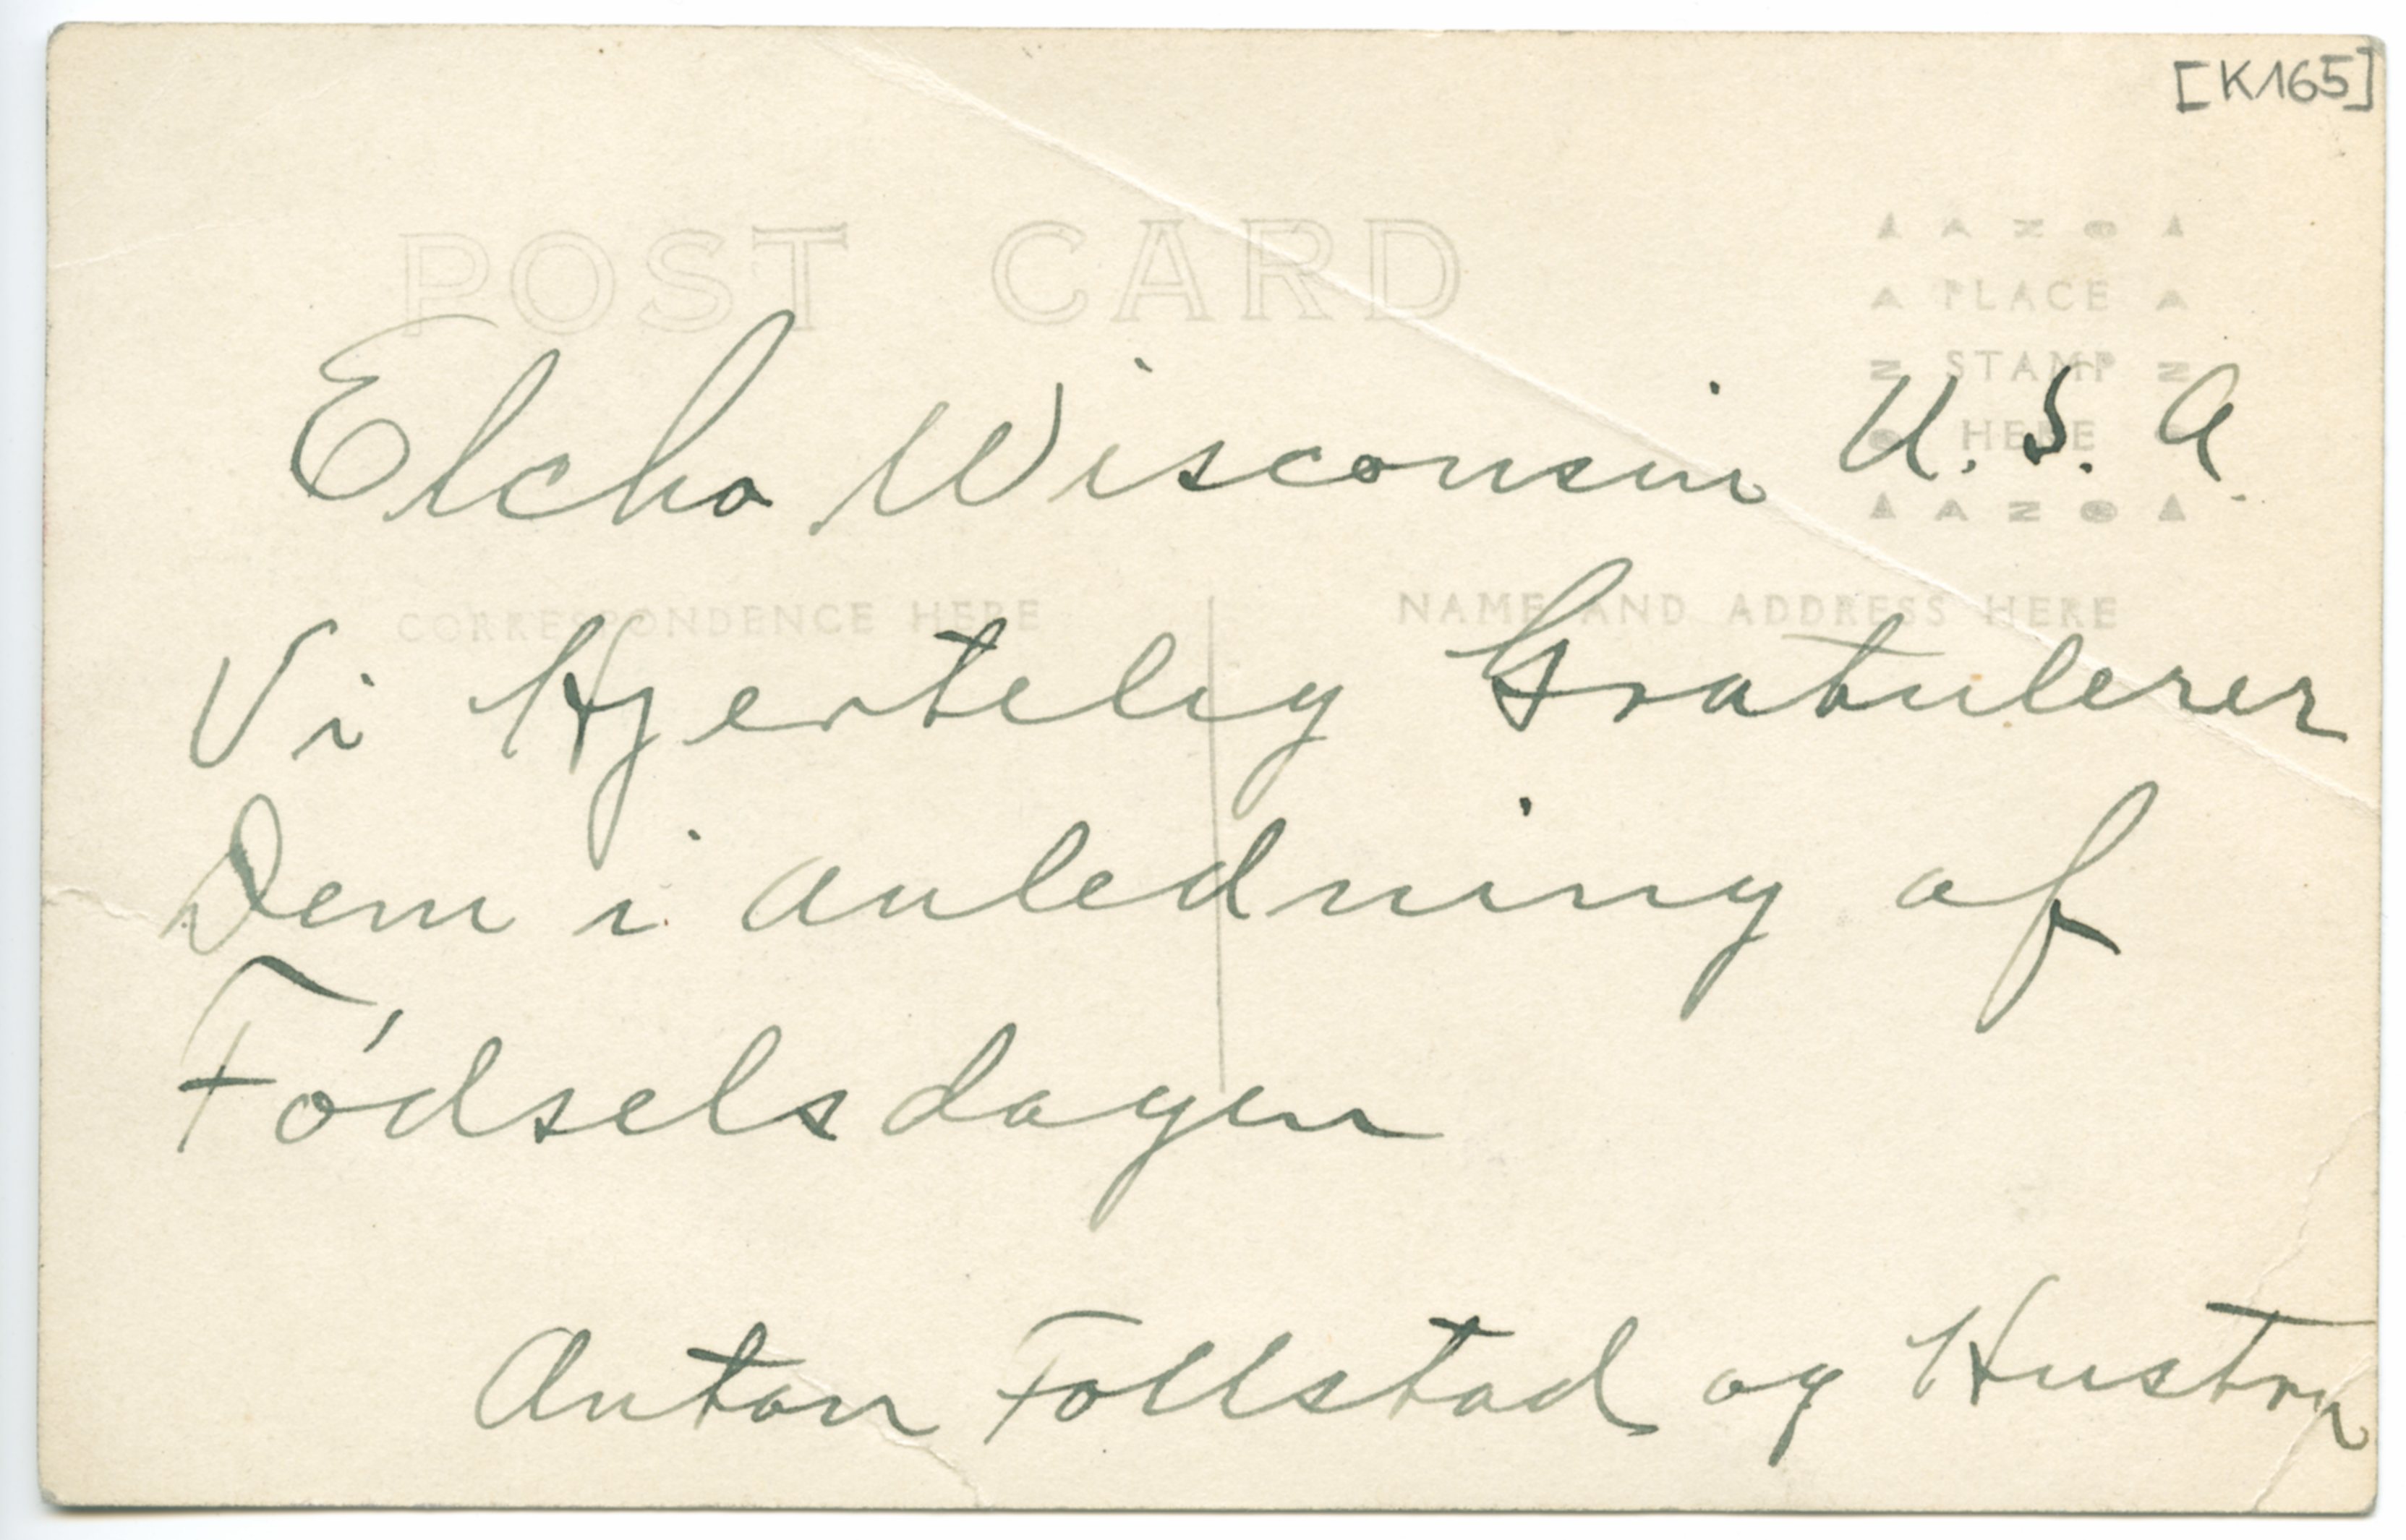 [K165]
POST CARD
▲ A Z O ▲
PLACE
STAMP
HERE
▲ A Z O ▲
Elcho Wisconsin U. S. A.
CORRESPONDENCE HERE
NAME AND ADDRESS HERE
Vi Hjertelig Gratulerer
Dem i anledning af
Fódselsdagen
Anton Follstad og Hustru